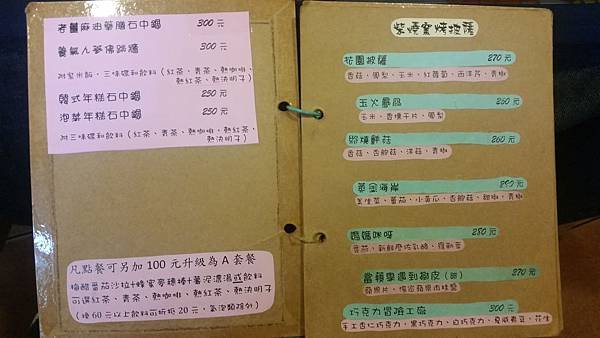 老薑麻油藥膳石中鍋 300 元
養氣人蔘佛跳牆 300 元
附紫米飯,三味碟和飲料(紅茶、青茶、熱咖啡、
熱紅茶、熱決明子)
韓式年糕石中鍋 250 元
泡菜年糕石中鍋 250 元
附三味碟和飲料(紅茶、青茶、熱咖啡、熱紅茶、
熱決明子)
凡點餐可另加 100 元升級為 A 套餐
梅醋番茄沙拉+蜂蜜麥穗棒+薯泥濃湯或飲料
可選紅茶、青茶、熱咖啡、熱紅茶、熱決明子
(換 60 元以上飲料可折抵 20 元,氣泡類除外)
柴燒窯烤披薩
花園披薩 270 元
香菇、鳳梨、玉米、紅蘿蔔、西洋芹、青椒
玉火鳳凰 250 元
玉米、香樸干片、鳳梨
照燒鮮菇 260 元
香菇、杏鮑菇、洋菇、青椒
黃金海岸
美生菜、番茄、小黃瓜、杏鮑菇、甜椒、青椒
媽媽咪呀 280 元
番茄、新鮮摩佐乳酪、羅勒葉
當蘋果遇到樹皮(甜) 270 元
蘋果片、蜂蜜蘋果肉桂醬
巧克力冒險工廠 300 元
手工杏仁巧克力、黑巧克力、白巧克力、夏威夷豆、花生